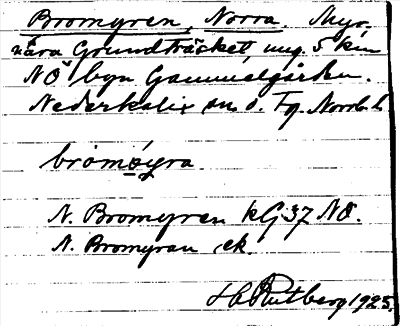 Bromyren, Norra. Myr,
nära Grundträsket, ung. 5 km
NÖ byn Gammelgården.
Nederkalix sn o. Fg. Norrb. l.
bromøyra
N. Bromyren kG37 NÖ.
N. Bromyran, ek.
H Rutberg 1925.